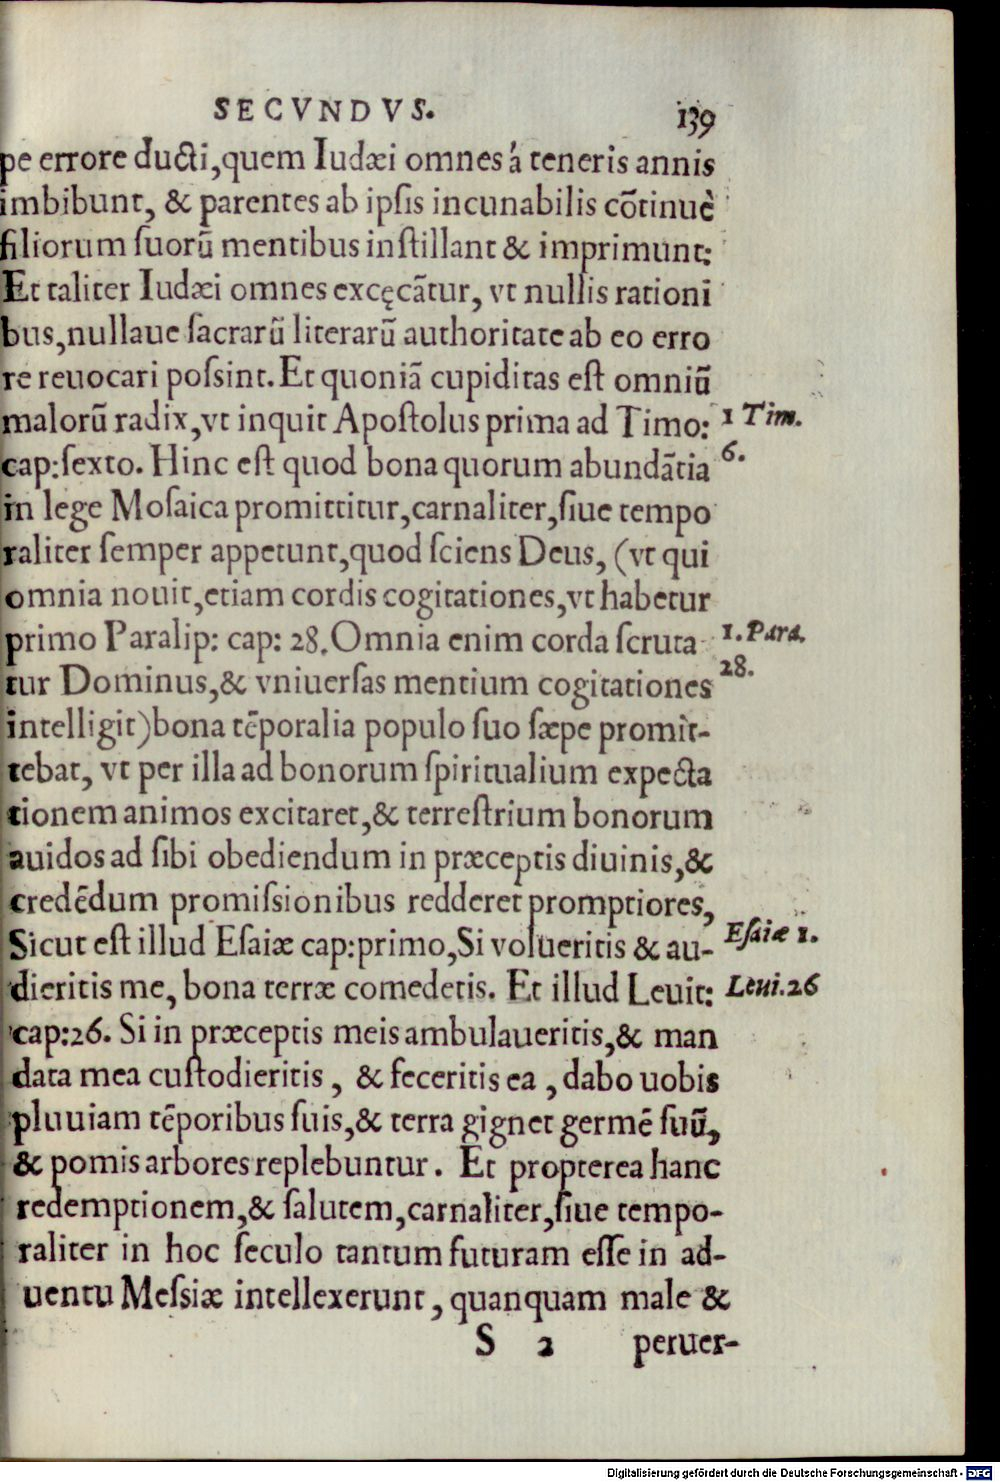 SECVNDVS. 139
pe errore ducti,quem Iudæi omnes á teneris annis
imbibunt, & parentes ab ipſis incunabilis cõtinuè
filiorum ſuorũ mentibus inſtillant & imprimunt:
Et taliter Iudæi omnes excęcãtur, vt nullis rationi
bus,nullaue ſacrarũ literarũ authoritate ab eo erro
re reuocari poſsint. Et quoniã cupiditas eſt omniũ
malorũ radix,vt inquit Apoſtolus prima ad Timo: 1 Tim.
cap:ſexto. Hinc eſt quod bona quorum abundãtia 6.
in lege Moſaica promittitur,carnaliter,ſiue tempo
raliter ſemper appetunt,quod ſciens Deus, (vt qui
omnia nouit,etiam cordis cogitationes,vt habetur
primo Paralip: cap: 28. Omnia enim corda ſcruta 1. Para.
tur Dominus,& vniuerſas mentium cogitationes 28.
intelligit)bona tẽporalia populo ſuo ſæpe promit-
tebat, vt per illa ad bonorum ſpiritualium expecta
tionem animos excitaret,& terreſtrium bonorum
auidos ad ſibi obediendum in præceptis diuinis,&
credẽdum promiſsionibus redderet promptiores,
Sicut eſt illud Eſaiæ cap:primo,Si volueritis & au- Eſaiæ 1.
dieritis me, bona terræ comedetis. Et illud Leuit: Leui.26
cap:26. Si in præceptis meis ambulaueritis,& man
data mea cuſtodieritis , & feceritis ea , dabo uobis
pluuiam tẽporibus ſuis,& terra gignet germẽ ſuũ,
& pomis arbores replebuntur. Et propterea hanc
redemptionem,& ſalutem,carnaliter,ſiue tempo-
raliter in hoc ſeculo tantum futuram eſſe in ad-
uentu Meſsiæ intellexerunt, quanquam male &
S 2 peruer-
Digitalisierung gefördert durch die Deutsche Forschungsgemeinschaft - DFG